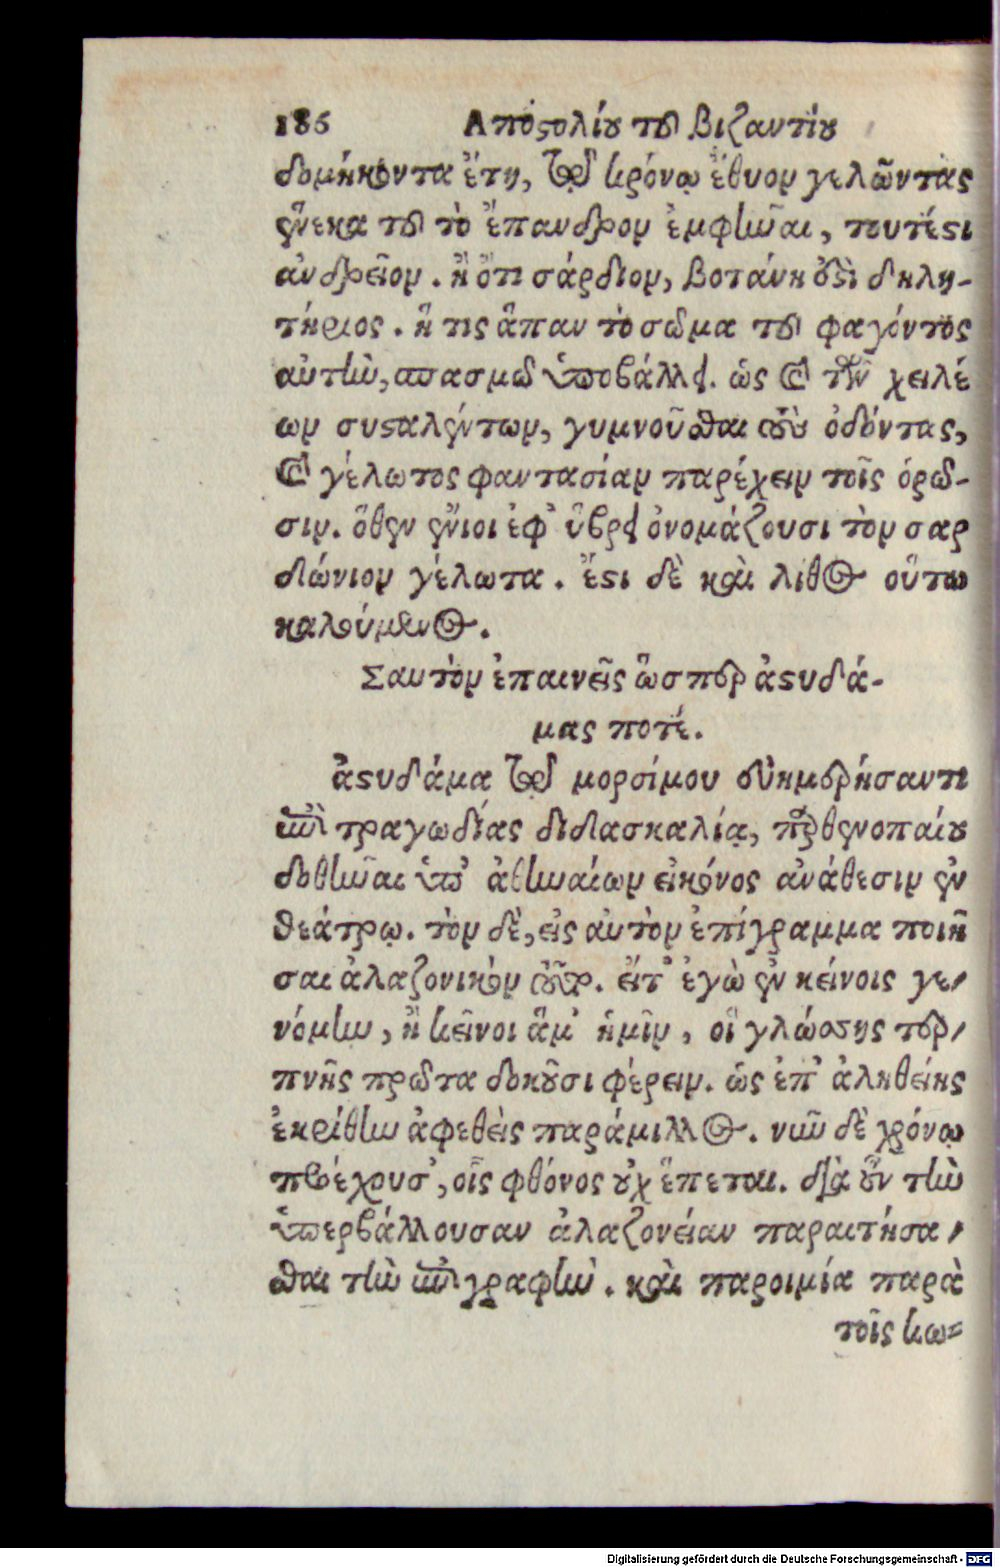 186 Αποστολίου τοῦ Βιζαντίου
δομήκοντα ἔτη, τῷ κρόνῳ ἔθυον γελῶντας
ἕνεκα τοῦ τὸ ἔπανδρον ἐμφῆναι, τουτέστι
ἀνδρεῖον. ἢ ὅτι σάρδιον, βοτάνη ἐστὶ δηλη-
τήριος. ἥ τις ἅπαν τὸ σῶμα τοῦ φαγόντος
αὐτὴν, σπασμῷ ὑποβάλλει. ὡς καὶ τῶν χειλέ
ων συσταλέντων, γυμνοῦσθαι τοὺς ὀδόντας,
καὶ γέλωτος φαντασίαν παρέχειν τοῖς ὁρῶ-
σιν. ὅθεν ἔνιοι ἐφ' ὕβρει ὀνομάζουσι τὸν σαρ
διώνιον γέλωτα. ἔστι δὲ καὶ λίθος οὕτω
καλούμενος.
Σαυτὸν ἐπαινεῖς ὥσπερ ἀστυδά-
μας ποτέ.
ἀστυδάμα τῷ μορσίμου εὐημερήσαντι
ἐπὶ τραγωδίας διδασκαλίᾳ, παρθενοπαίου
δοθῆναι ὑπ' ἀθηναίων εἰκόνος ἀνάθεσιν ἐν
θεάτρῳ. τὸν δὲ, εἰς αὐτὸν ἐπίγραμμα ποιῆ
σαι ἀλαζονικὸν οὕτως. εἴτ' ἐγὼ ἐν κείνοις γε-
νόμην, ἢ κεῖνοι ἅμ' ἡμῖν, οἳ γλώσσης τερ-
πνῆς πρῶτα δοκοῦσι φέρειν. ὡς ἐπ' ἀληθείης
ἐκρίθην ἀφεθεὶς παράμιλλος. νῦν δὲ χρόνῳ
προέχουσ', οἷς φθόνος οὐχ ἕπεται. διὰ οὖν τὴν
ὑπερβάλλουσαν ἀλαζονείαν παραιτήσα-
σθαι τὴν ἐπιγραφὴν. καὶ παροιμία παρὰ
τοῖς κω=
Digitalisierung gefördert durch die Deutsche Forschungsgemeinschaft - DFG